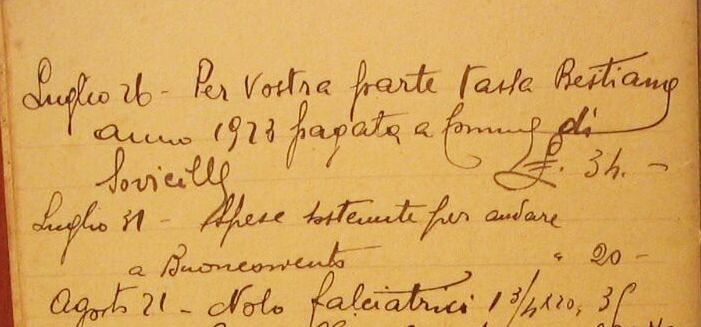 Luglio 26 - Per Vostra parte tassa Bestiame
anno 1923 pagata a Comune di
Sovicille £. 34. -
Luglio 31 - Spese sostenute per andare
a Buonconvento " 20 -
Agosto 21 - Nolo falciatrici 1 3/4